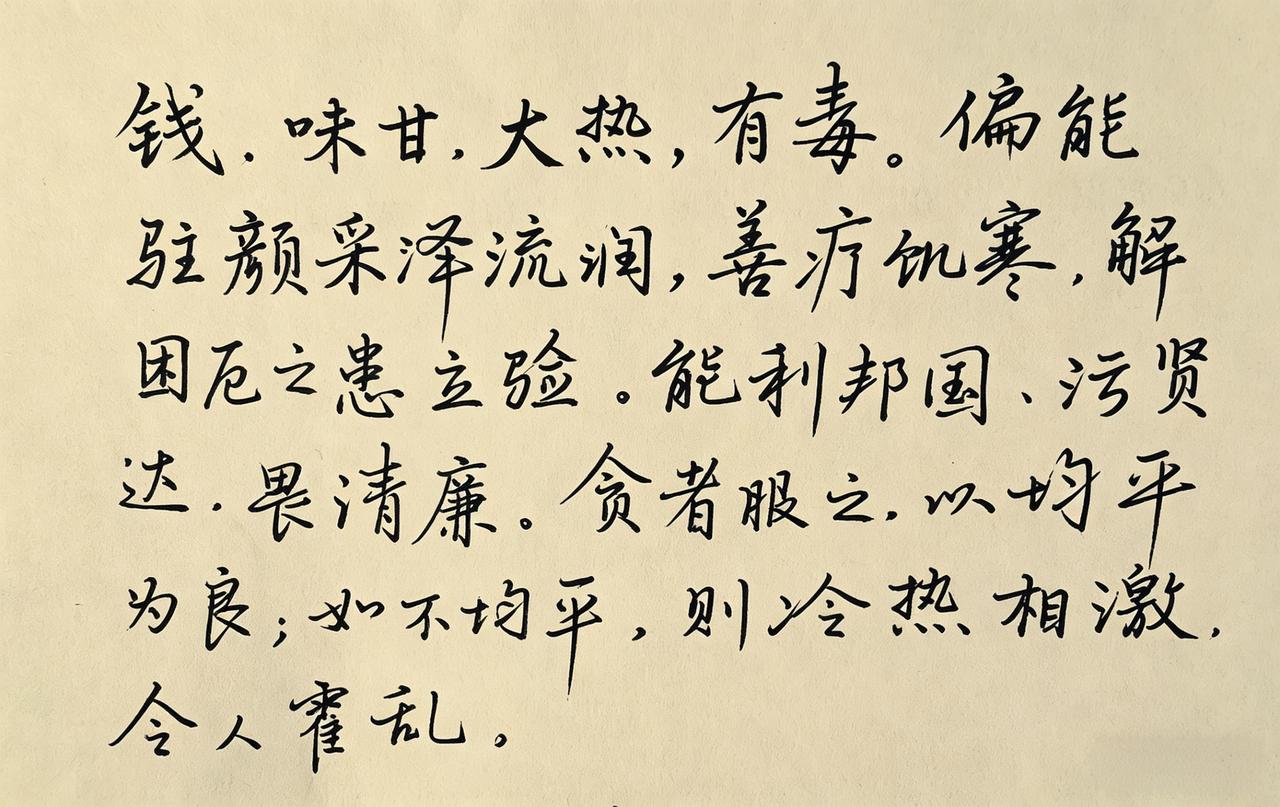 钱，味甘，大热，有毒。偏能
驻颜采泽流润，善疗饥寒，解
困厄之患立验。能利邦国、污贤
达，畏清廉。贪者服之，以均平
为良；如不均平，则冷热相激，
令人霍乱。